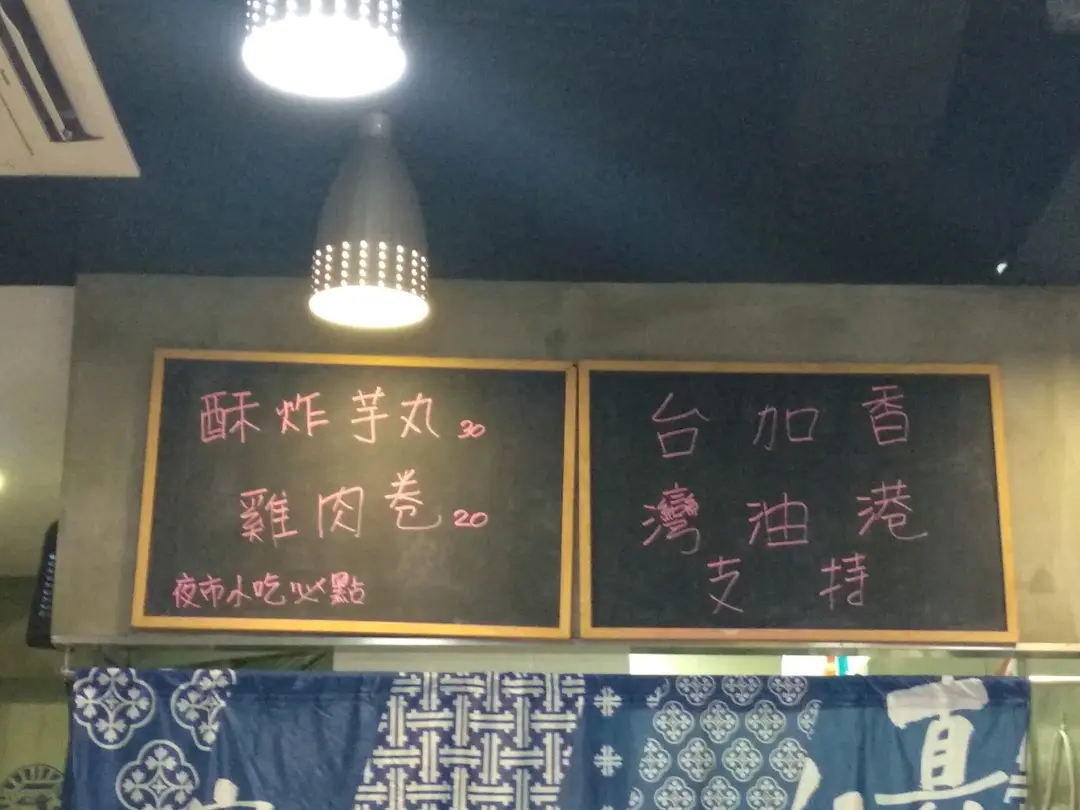 酥炸芋丸30
雞肉卷20
夜市小吃必點
香港
加油
台灣
支持
真